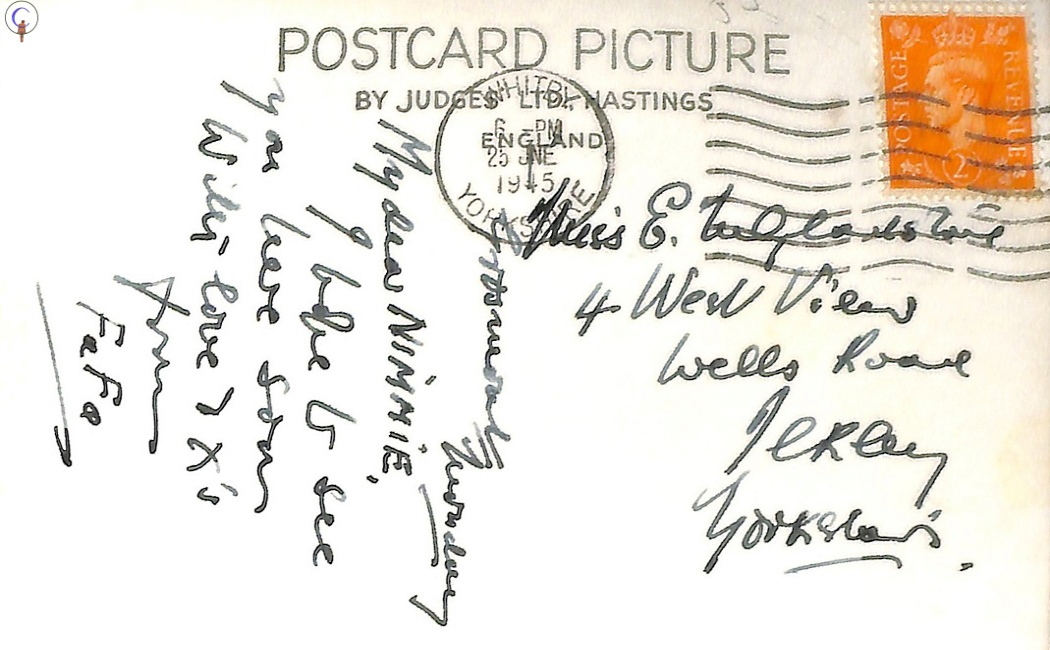 POSTCARD PICTURE
BY JUDGES LTD. HASTINGS
ENGLAND
WHITBY
6 - PM
25 JNE
1945
YORKSHIRE
POSTAGE
REVENUE
2D
Miss E.
4 West View
Wells Road
Ilkley
Yorkshire.
Monday
My dear NIMMIE,
I hope to see
you here soon
Wiley - love & X's
from
FaFa
C